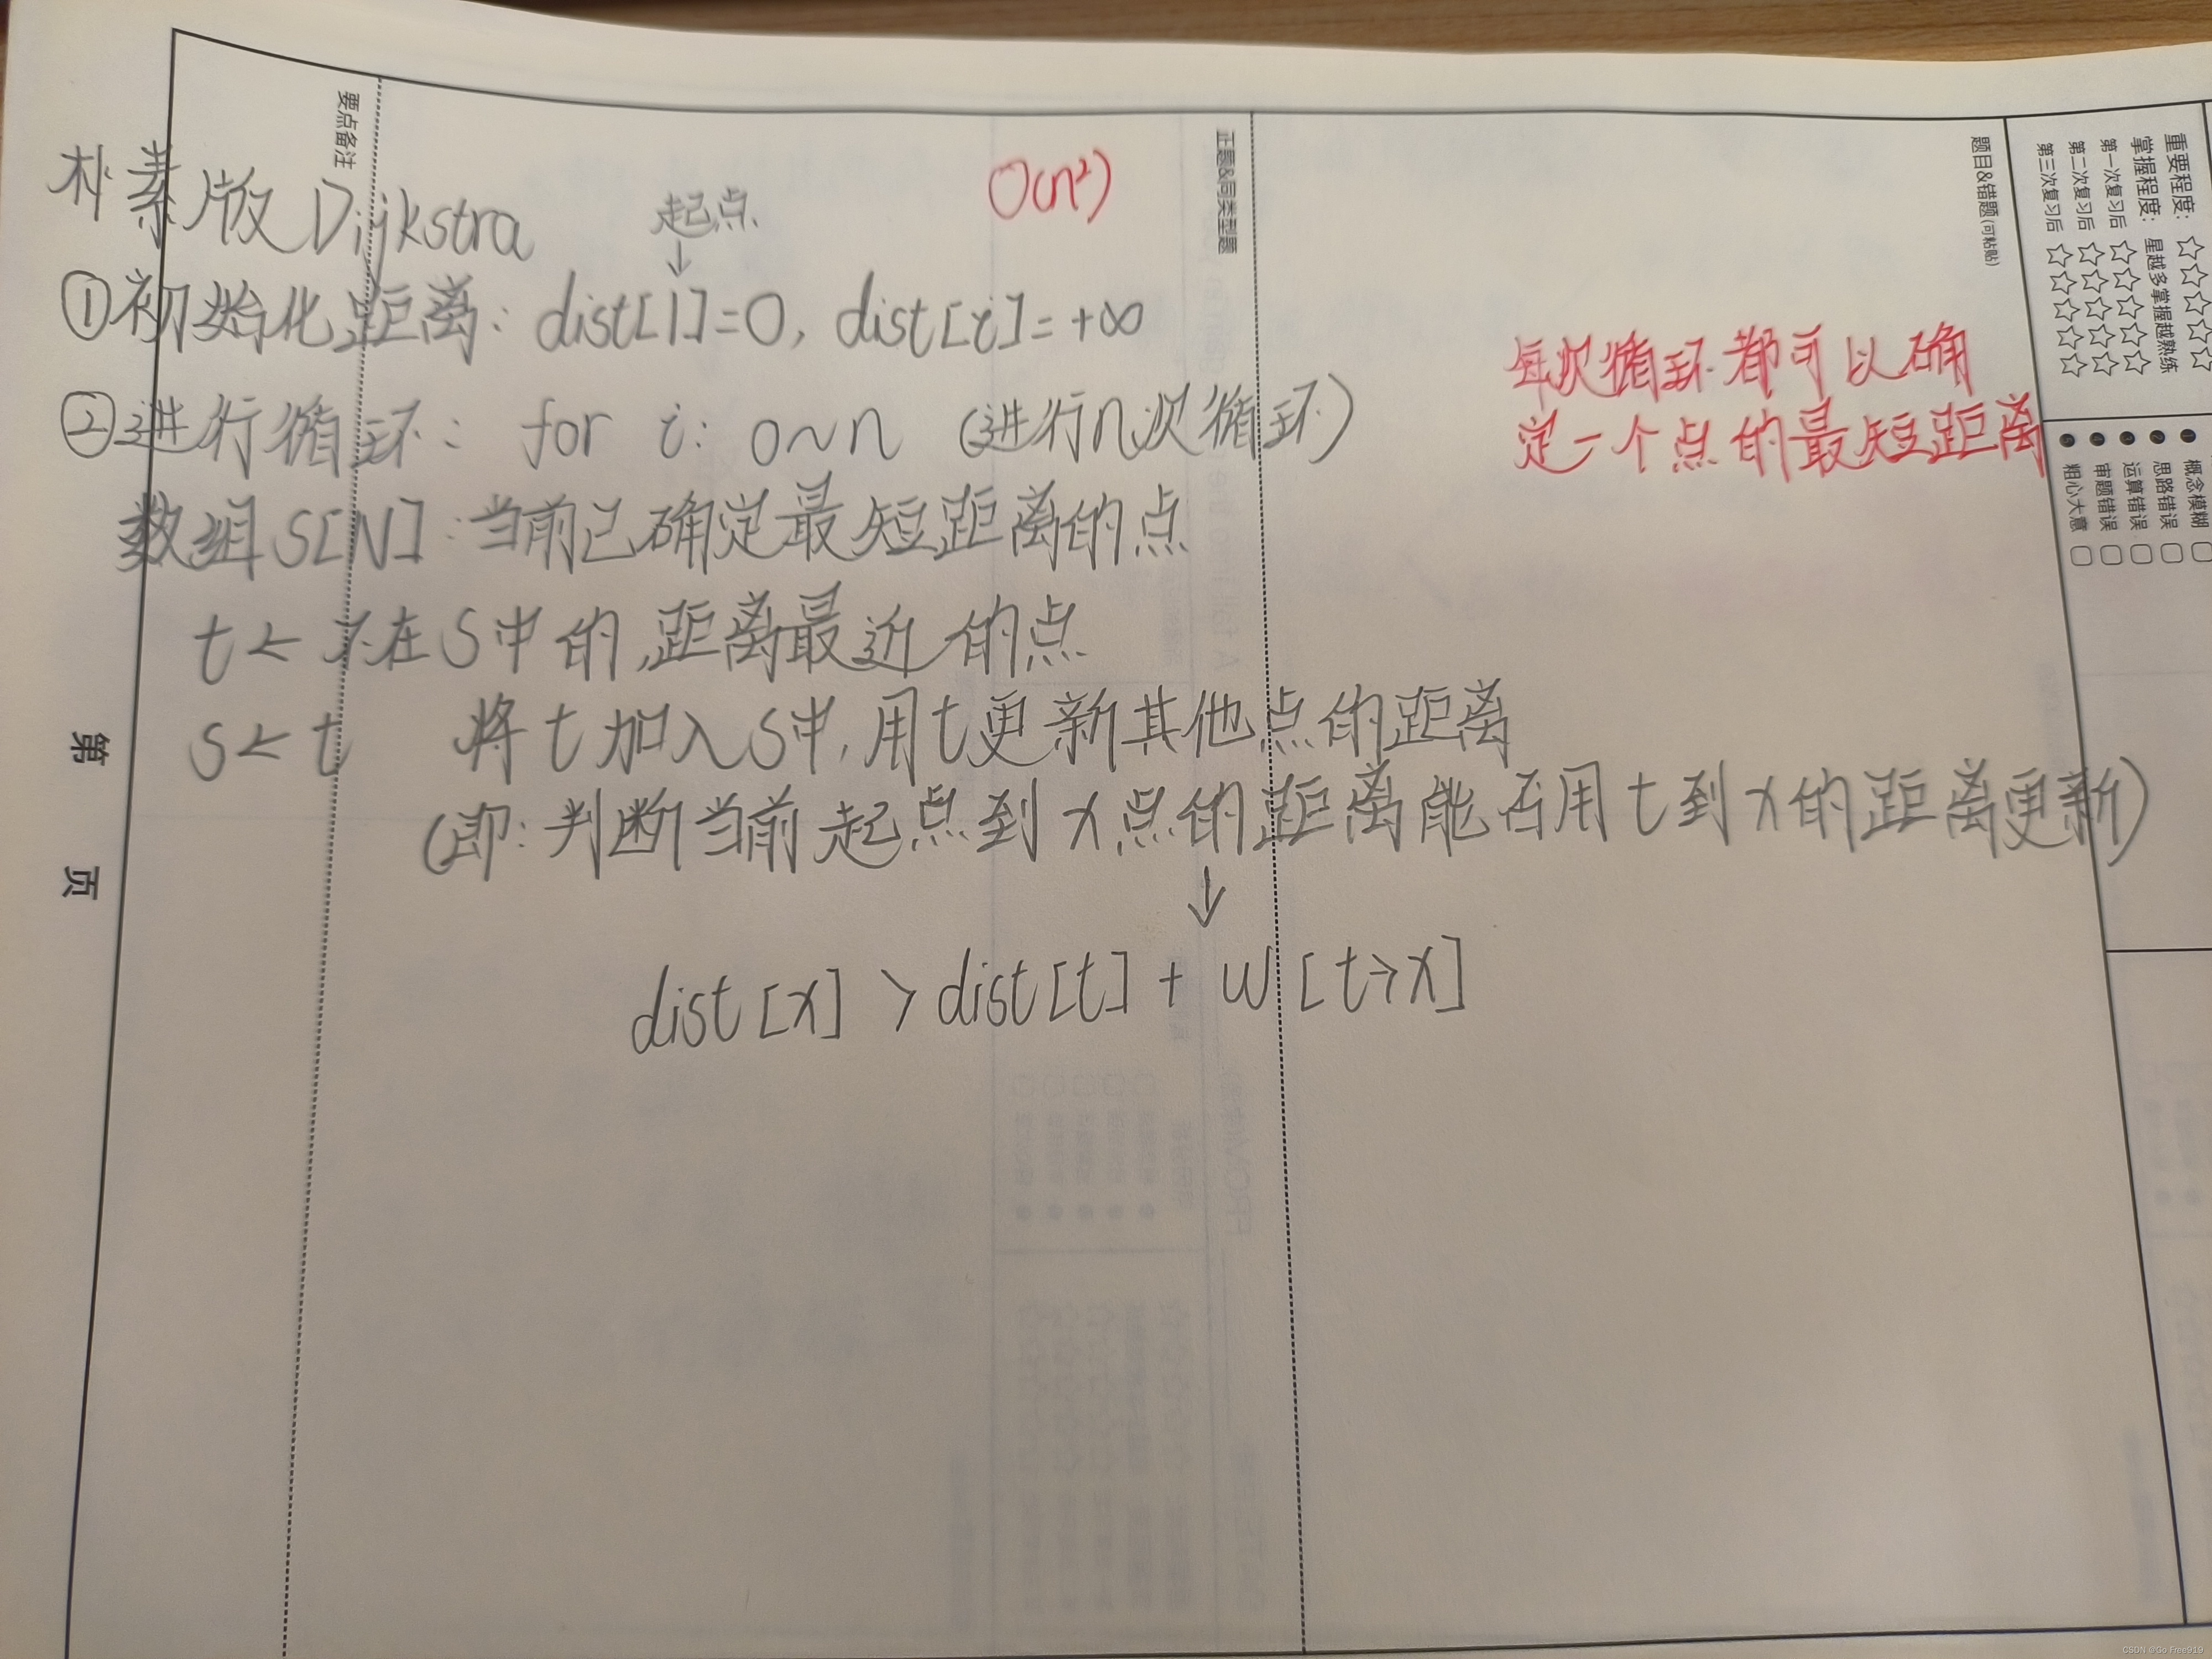 朴素版 Dijkstra
起点
↓
O(n²)
①初始化距离: dist[1]=0, dist[i]=+∞
②进行循环: for i: 0~n (进行n次循环)
每次循环都可以确
定一个点的最短距离
数组 S[N]: 当前已确定最短距离的点
t ← 不在S中的,距离最近的点
S ← t 将t加入S中,用t更新其他点的距离
(即: 判断当前起点到x点的距离能否用t到x的距离更新)
↓
dist[x] > dist[t] + w[t→x]
要点备注
正题&同类型题
题目&错题(可粘贴)
重要程度: ☆☆☆☆☆
掌握程度: 星越多掌握越熟练
第一次复习后 ☆☆☆☆☆
第二次复习后 ☆☆☆☆☆
第三次复习后 ☆☆☆☆☆
概念模糊
思路错误
运算错误
审题错误
粗心大意
第 页
CSDN @Go Free919